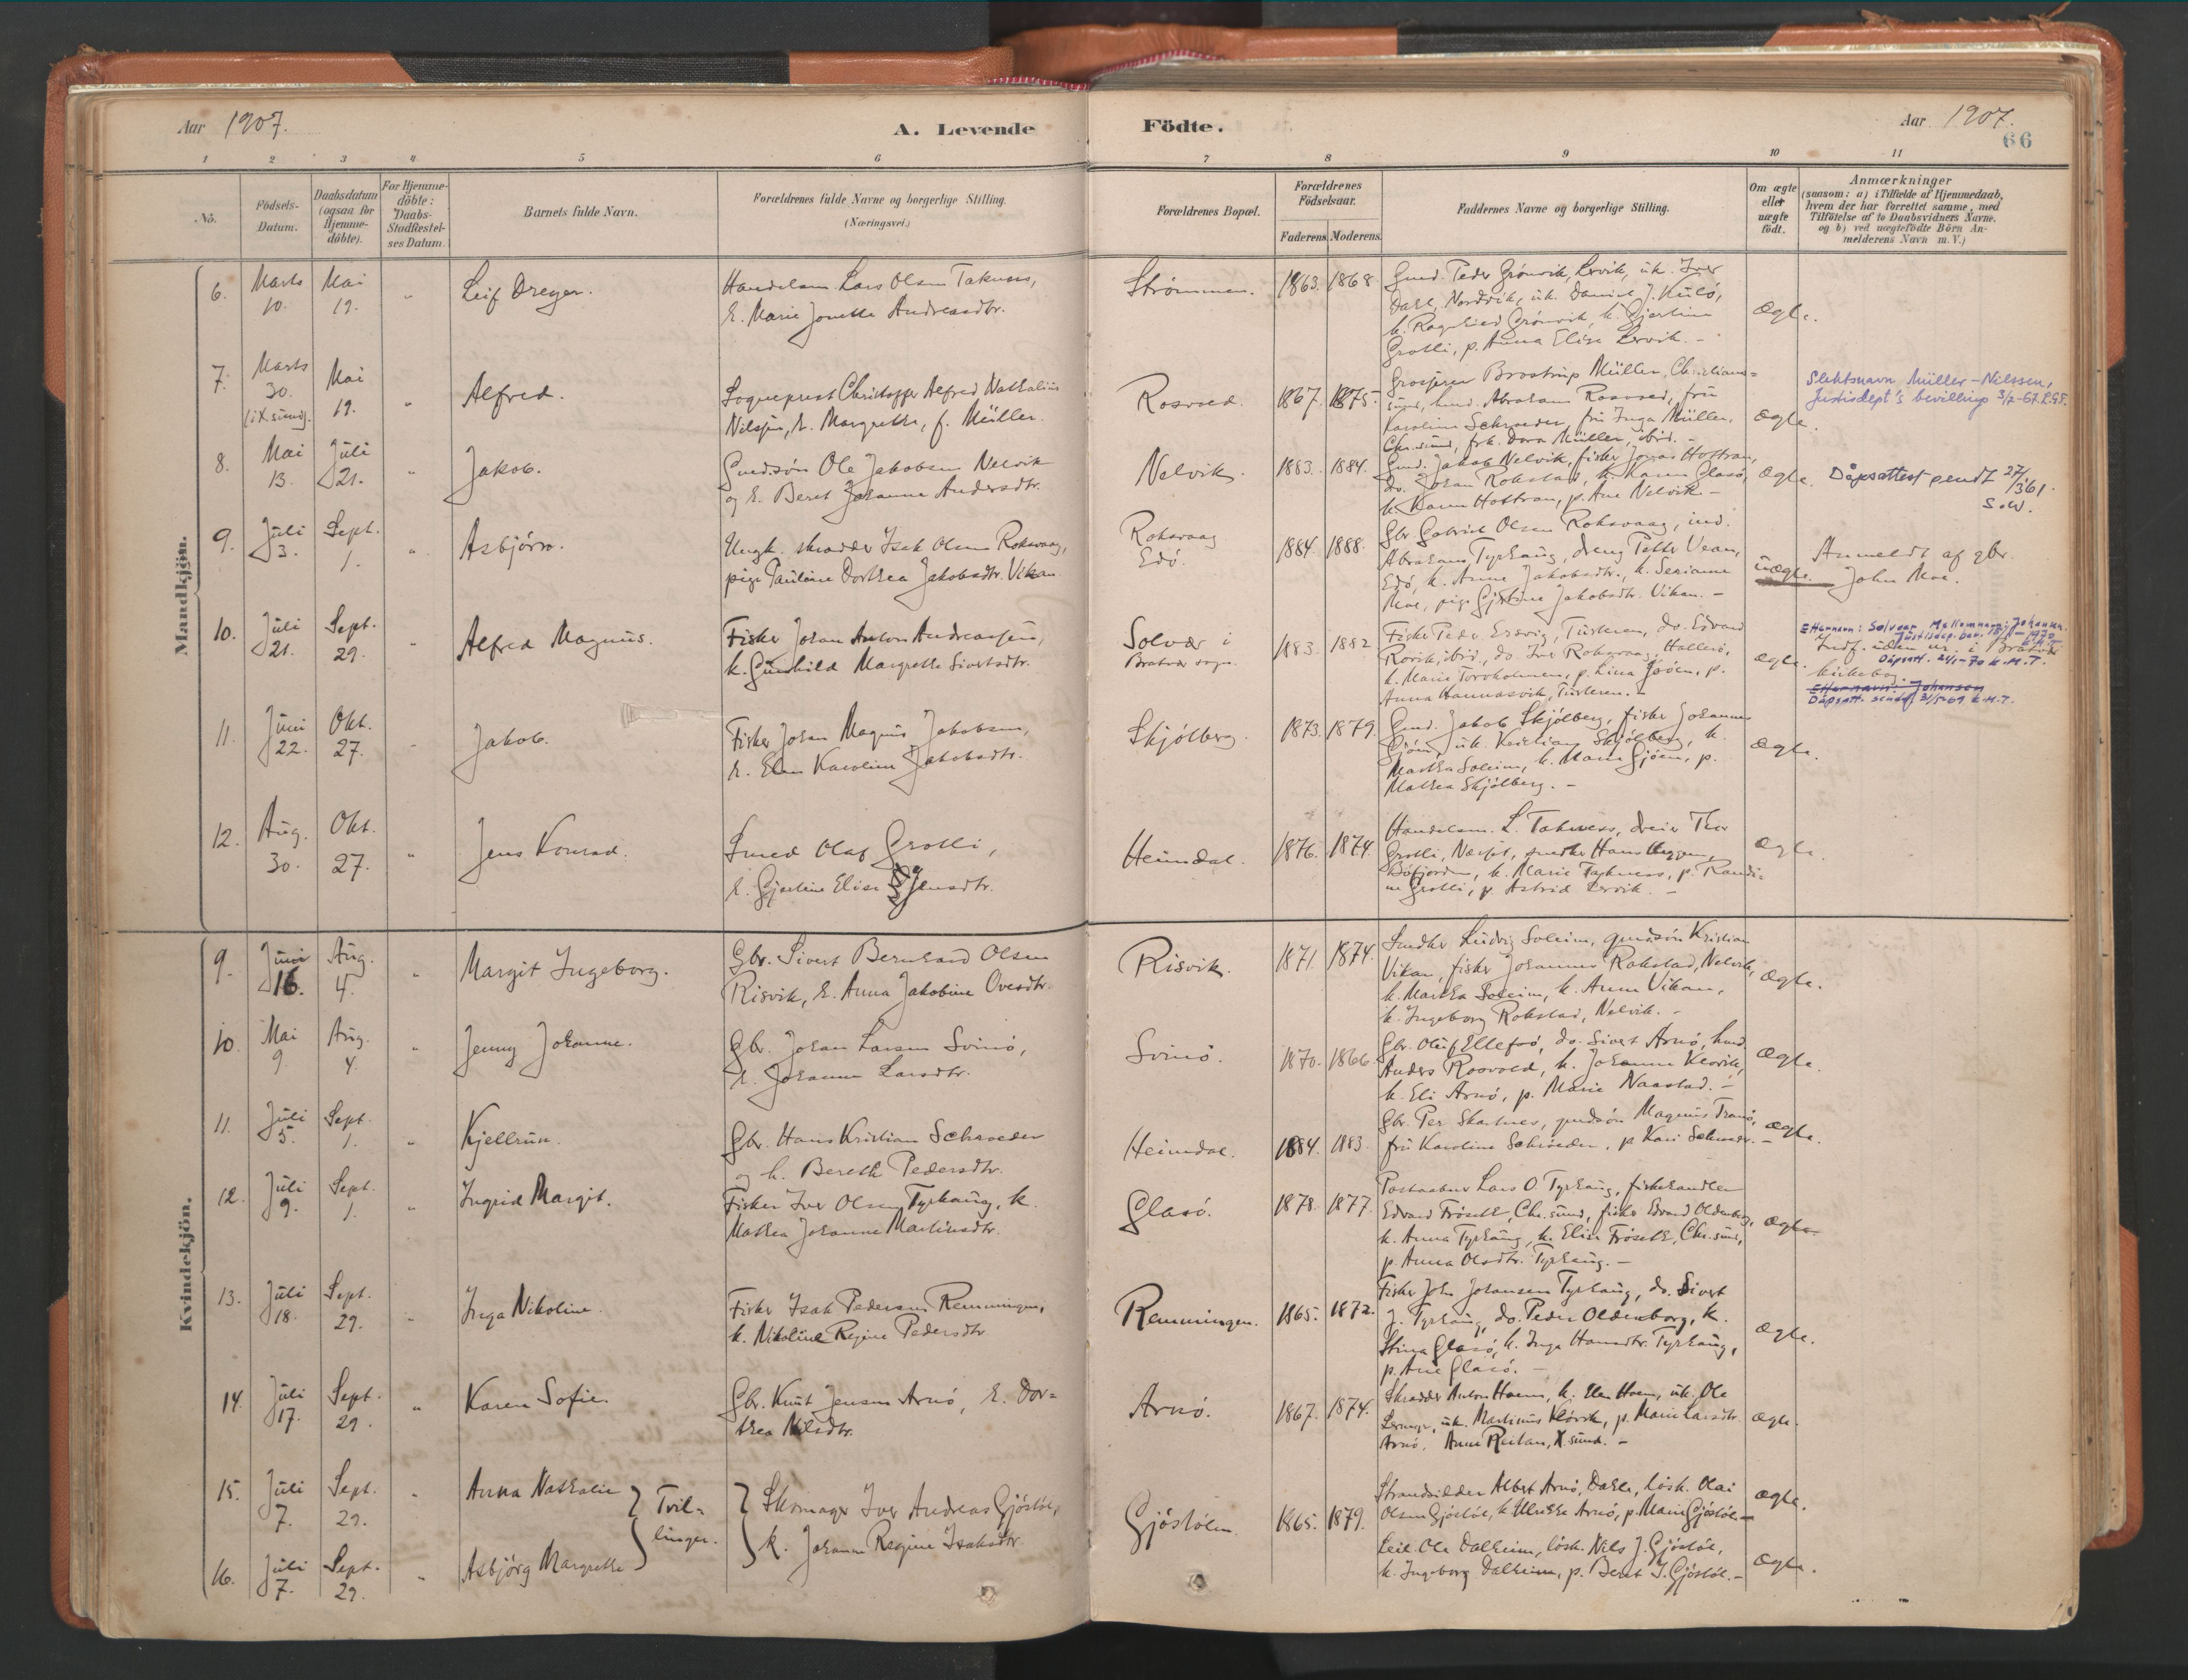 Aar 1907.
A. Levende
Födte.
Aar 1907.
66
1 2 3 4 5 6 7 8 9 10 11
No.
Födsels-
Datum.
Daabsdatum
(ogsaa for
Hjemme-
döbte).
For Hjemme-
döbte:
Daabs-
Stadfæstel-
ses Datum.
Barnets fulde Navn.
Forældrenes fulde Navne og borgerlige Stilling.
(Næringsvei.)
Forældrenes Bopæl.
Forældrenes
Födselsaar.
Faderens. Moderens.
Faddernes Navne og borgerlige Stilling.
Om ægte
eller
uægte
födt.
Anmærkninger
(saasom: a) i Tilfælde af Hjemmedaab,
hvem der har forrettet samme, med
Tilföielse af to Daabsvidners Navne.
og b) ved uægtefödte Börn An-
melderens Navn m. V.)
Mandkjön.
6. Marts 10. Mai 19. " Leif Dreyer.
Handelsm. Lars Olsen Taknes,
h. Marie Jonette Andreasdtr.
Strømmen. 1863. 1868
Gmd. Peder Grönvik, Lervik, uk. Iver
Dahl, Nordvik, uk. Daniel J. Kulö,
k. Ragnhild Grönvik, k. Gjertine
Grolli, p. Anna Elise Lervik. -
Ægte.
7. Marts 30. (i X.sund). Mai 19. " Alfred.
Sogneprest Christopher Alfred Nathalius
Nilssen, h. Margrethe, f. Müller.
Rosvold. 1867. 1875.
Grosserer Brostrup Müller, Christians-
sund, hmd. Abraham Rosvold, fru
Karoline Schrøder, fru Inga Müller,
Chr.sund, frk. Dora Müller, ibid. -
Ægte.
Slektsnavn Müller-Nilssen,
Justisdept's bevilling 3/2-67. R.G.F.
8. Mai 13. Juli 21. " Jakob.
Gmdsön Ole Jakobsen Nelvik
og h. Beret Johanna Andersdtr.
Nelvik. 1883. 1884.
Gmd. Jakob Nelvik, fisker Jonas Hostran,
do. Johan Rokstad, k. Karen Glasö,
k. Karen Hostran, p. Ane Nelvik. -
Ægte.
Dåpsattest sendt 27/3 61.
S.W.
9. Juli 3. Sept. 1. " Asbjörn.
Ungk. skrædder Isak Olsen Roksvaag,
pige Pauline Dorthea Jakobsdtr. Vikan.
Roksvaag
Edö. 1884. 1888.
Gbr. Gabriel Olsen Roksvaag, ind.
Abraham Tyrhaug, dreng Petter Vean,
Edö, k. Anne Jakobsdtr., k. Serianna
Moe, pige Gjertine Jakobsdtr. Vikan. -
uægte.
Anmeldt af gbr.
John Moe.
10. Juli 21. Sept. 29. " Alfred Magnus.
Fisker Johan Anton Andreassen,
k. Gunhild Margrethe Sivertsdtr.
Solvær i
Bratvær sogn. 1883. 1882
Fisker Peder Ersvig, Tusteren, do. Edvard
Rörvik, ibid., do. Iver Roksvaag, Hallerö,
k. Marie Torvholmen, p. Lina Jöen, p.
Anna Hannasvik, Tusteren. -
ægte.
Etternavn: Solvær Mellomnavn: Johansen.
Justisdep. bev. 1970
Indf. uden nr. i Bratvær
Dåpsatt. 24/1-70 K.M.T.
kirkebog.
Etternavn: Johansen
Dåpsatt. sendt 31/5-69 K.M.T.
11. Juni 22. Okt. 27. " Jakob.
Fisker Johan Magnus Jakobsen,
h. Elen Karoline Jakobsdtr.
Skjölberg. 1873. 1879.
Gmd. Jakob Skjölberg, fisker Johannes
Gjöen, uk. Kristian Skjölberg, k.
Martha Soleim, k. Maren Gjöen, p.
Mathea Skjölberg. -
Ægte.
12. Aug. 30. Okt. 27. " Jens Konrad.
Smed Olaf Grolli,
h. Gjertine Elise Jensdtr.
Heimdal. 1876. 1874.
Handelsm. L. Taknes, dreier Thor
Grolli, Næsset, snedker Hans
Böfjorden, k. Marie Taknes, p. Randi-
ne Grolli, p. Astrid Lervik. -
Ægte.
Kvindekjön.
9. Juni 16. Aug. 4. " Margit Ingeborg.
Gbr. Sivert Bernhard Olsen
Risvik, h. Anna Jakobine Ovesdtr.
Risvik. 1871. 1874.
Snedker Ludvig Soleim, gmdsön Kristian
Vikan, fisker Johannes Rokstad, Nelvik,
k. Martha Soleim, k. Anne Vikan,
k. Ingeborg Rokstad, Nelvik. -
Ægte.
10. Mai 9. Aug. 4. " Jenny Johanne.
Gbr. Johan Larsen Svinö,
h. Johanna Larsdtr.
Svinö. 1870. 1866.
Gbr. Oluf Ellefsö, do. Sivert Arnö, hmd.
Anders Rosvold, k. Johanna Kleivik,
k. Eli Arnö, p. Marie Naastad. -
Ægte.
11. Juli 5. Sept. 1. " Kjellrun.
Gbr. Hans Kristian Schrøder
og h. Bereth Pedersdtr.
Heimdal. 1884. 1883.
Gbr. Per Skarsnes, gmdsön Magnus Tranö,
fru Karoline Schrøder, p. Kari Schrøder. -
Ægte.
12. Juli 9. Sept. 1. " Ingrid Margit.
Fisker Iver Olsen Tyrhaug, k.
Mathea Johanne Martinusdtr.
Glasö. 1878. 1877.
Postaabner Lars O. Tyrhaug, fiskehandler
Edvard Fröseth, Chr.sund, fisker Edvard Oldenborg,
k. Anna Tyrhaug, k. Elise Fröseth, Chr.sund,
p. Anna Olsdtr. Tyrhaug. -
Ægte.
13. Juli 18. Sept. 29. " Inga Nikoline.
Fisker Isak Pedersen Remmingen,
k. Nikoline Regine Pedersdtr
Remmingen. 1865. 1872.
Fisker John Johansen Tyrhaug, do. Sivert
J. Tyrhaug, do. Peder Oldenborg, k.
Stina Glasö, k. Inga Hansdtr. Tyrhaug,
p. Ane Glasö. -
Ægte.
14. Juli 17. Sept. 29. " Karen Sofie.
Gbr. Knut Jensen Arnö, h. Dor-
thea Nilsdtr.
Arnö. 1867. 1874.
Skrædder Anton Hoem, k. Elen Hoem, uk. Ole
uk. Martinus Klövik, p. Marie Larsdtr.
Arnö, Anne Reitan, X.sund. -
ægte.
15. Juli 7. Sept. 29. " Anna Nathalie
16. Juli 7. Sept. 29. " Asbjörg Margrethe
Tvil-
linger.
Skomager Iver Andreas Gjöstöl,
k. Johanna Regine Isaksdtr.
Gjöstölen. 1865. 1879.
Strandsidder Albert Arnö, Dahle, lösk. Olai
Olsen Gjöstöl, k. Ulrikke Arnö, p. Marie Gjöstöl. -
Ægte.
Leil. Ole Dalheim, lösk. Nils J. Gjöstöl,
k. Ingeborg Dalheim, p. Beret I. Gjöstöl. -
Ægte.